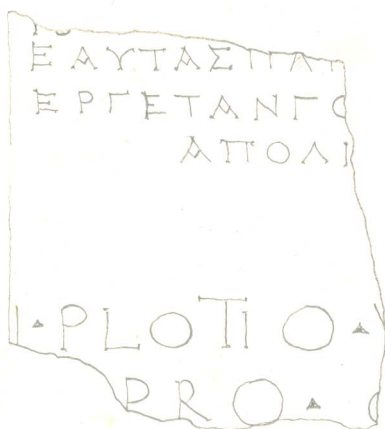 ΕΑΥΤΑΣΠΑΤ
ΕΡΓΕΤΑΝΓΟ
ΑΠΟΛΙ
I · PLOTIO ·
PRO ·